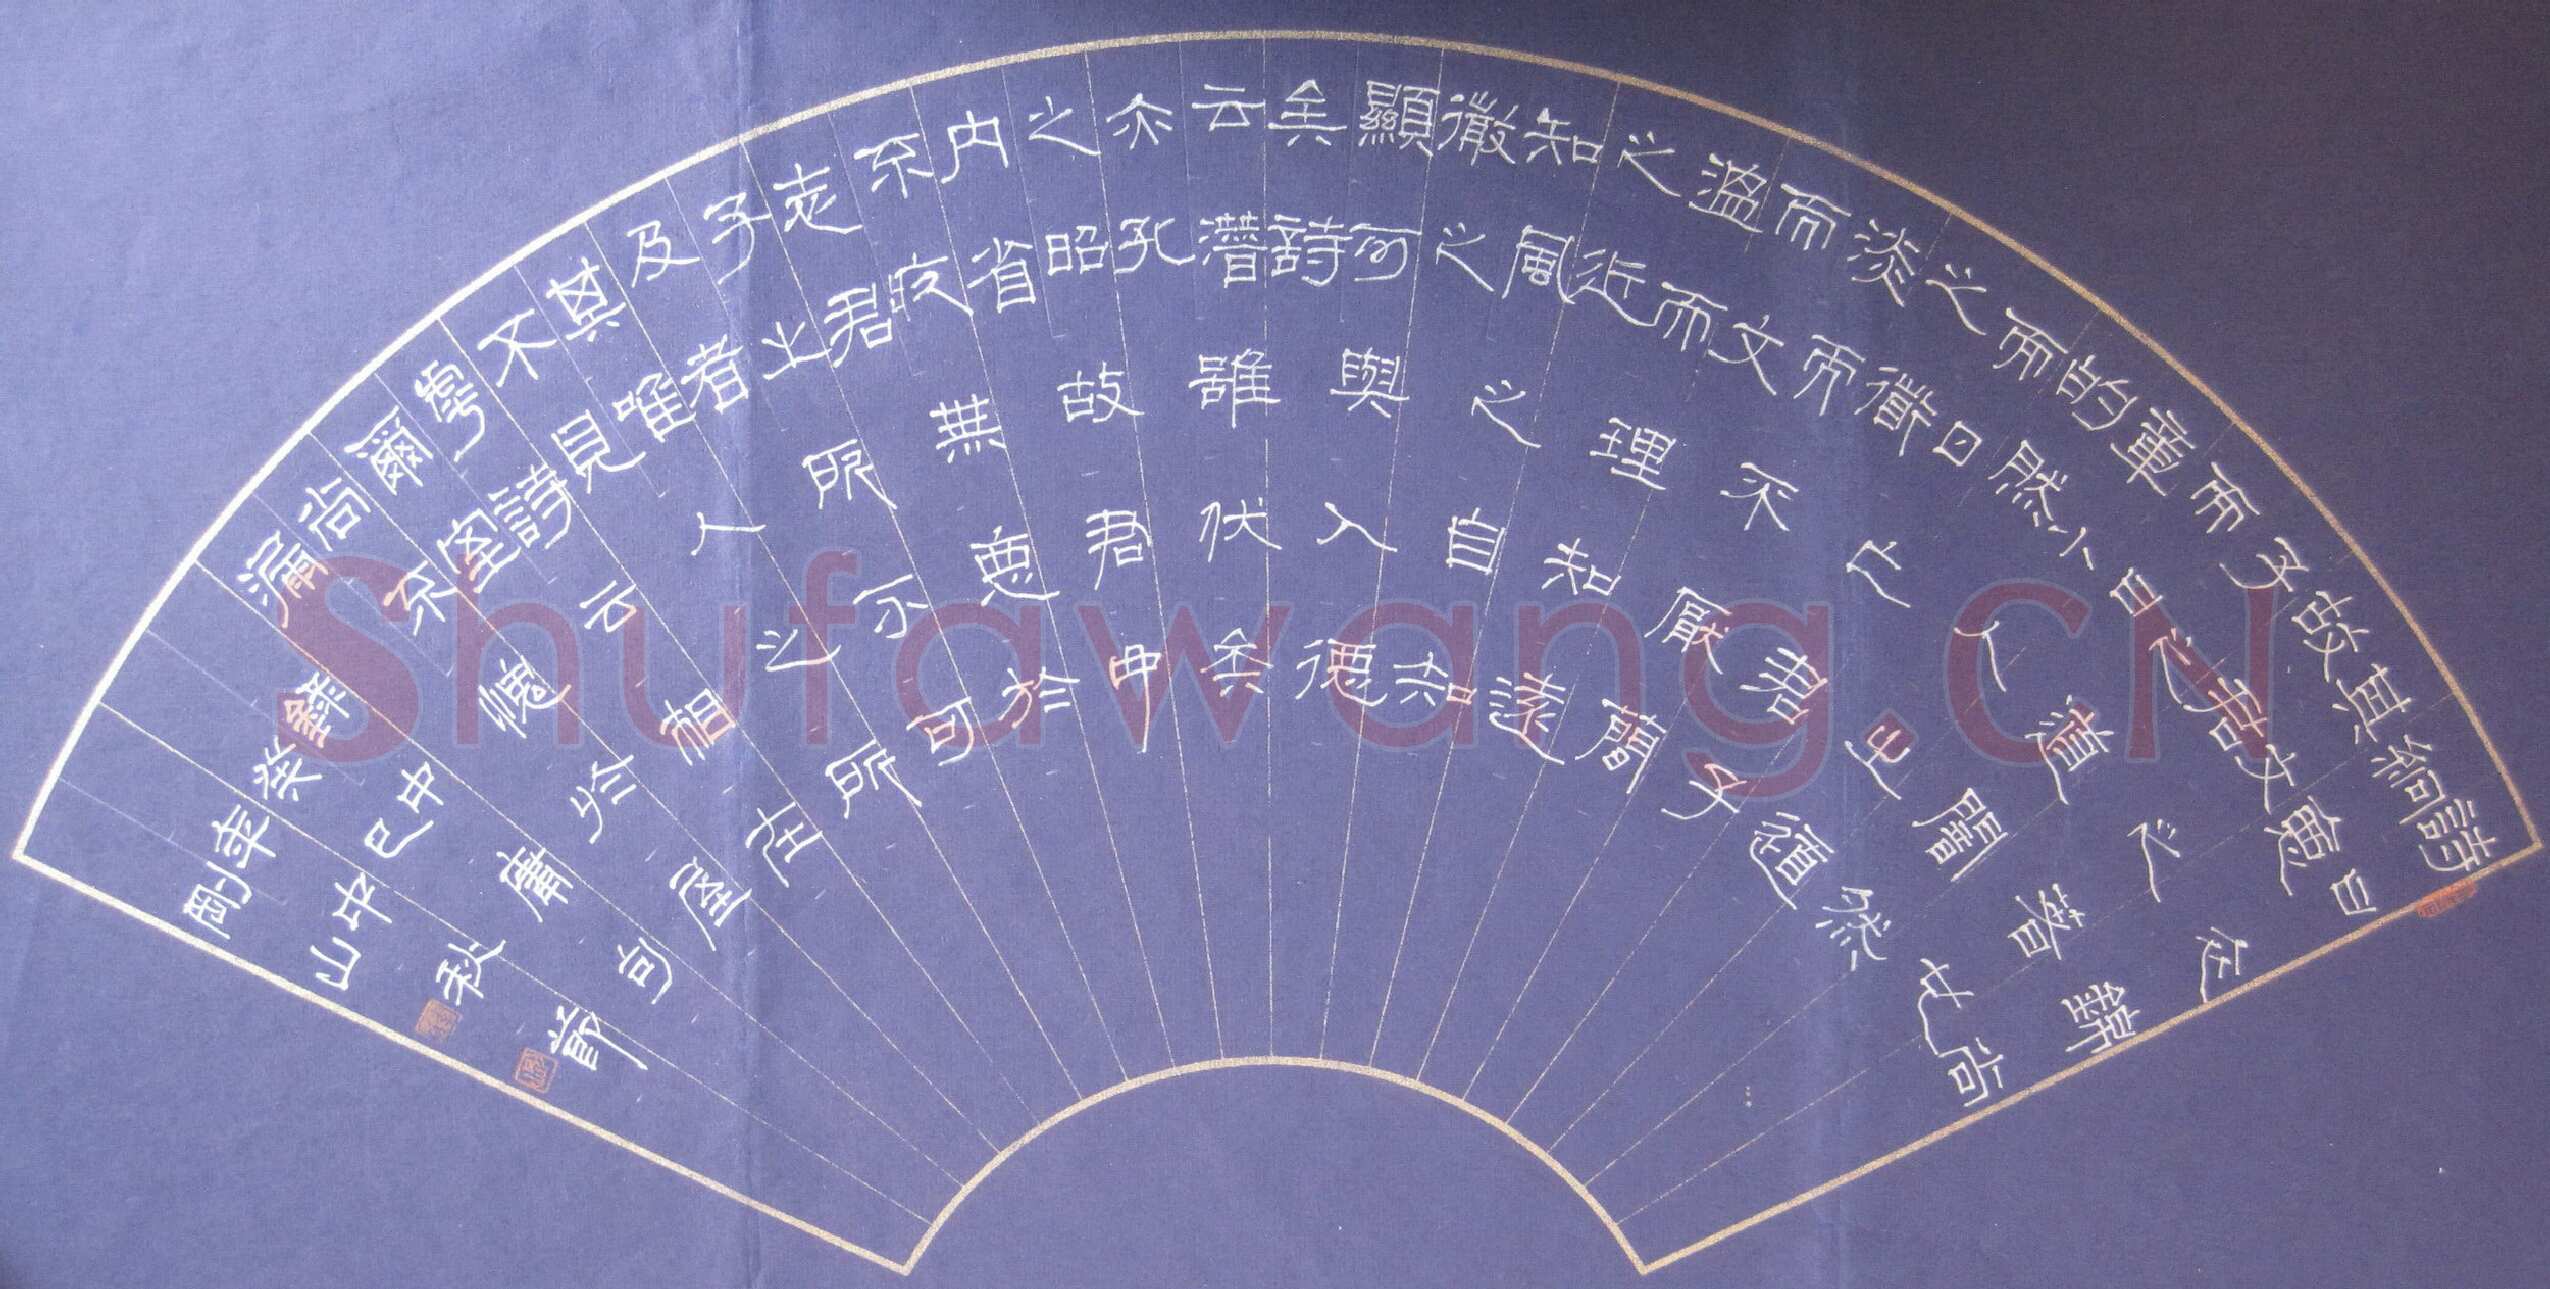 詩曰衣錦尚
絅惡
其文之著也
故君
子之道闇然
而日
章小人之道
的然
而日亡君子
之道
淡而不厭簡
而文
溫而理知遠
之近
知風之自知
微之
顯可與入德
矣詩
云潛雖伏矣
亦孔
之昭故君子
內省
不疚無惡於
志君
子之所不可
及者
其唯人之所
不見
乎詩云相在
爾室
尚不愧于屋
漏
錄中庸句
癸巳
年中秋
剛山
Shufawang.CN